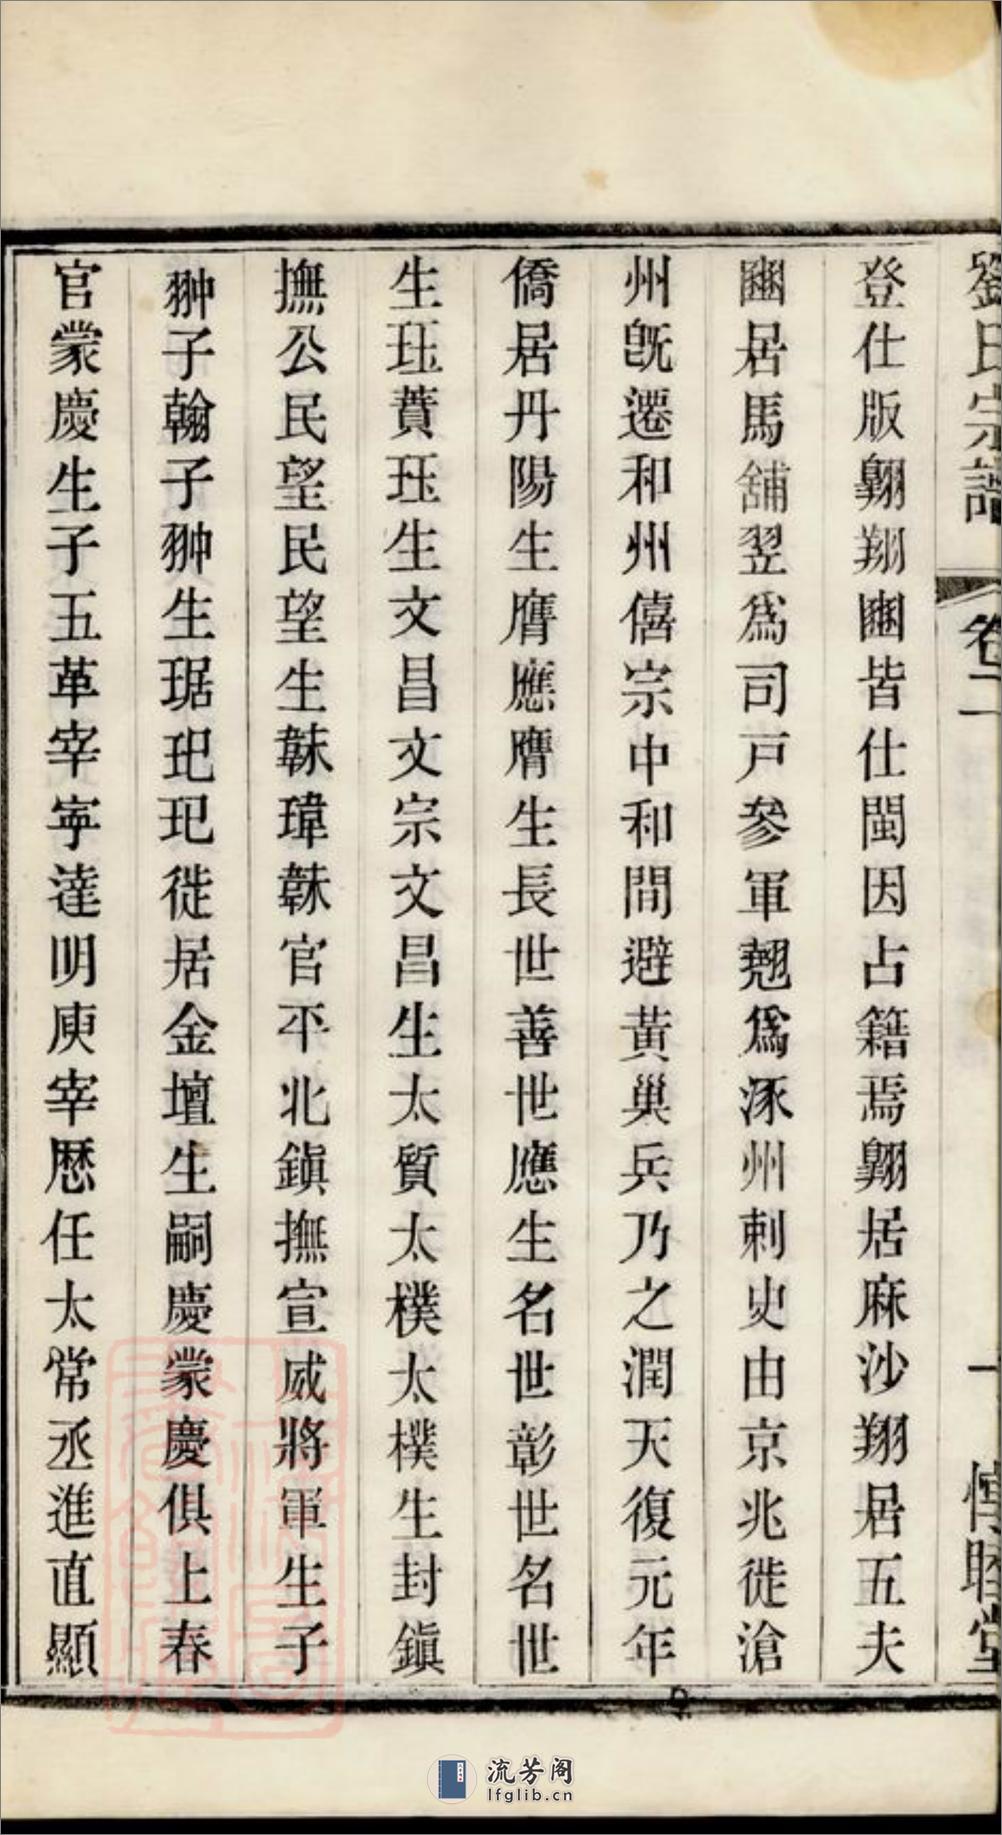 劉氏宗譜 卷二 一 惇睦堂
登仕版翺翔豳皆仕閩因占籍焉翺居麻沙翔居五夫
豳居馬舖翌爲司戸參軍翹爲涿州刺史由京兆徙滄
州旣遷和州僖宗中和間避黃巢兵乃之潤天復元年
僑居丹陽生膺應膺生長世善世應生名世彰世名世
生珏蕡珏生文昌文宗文昌生太質太樸太樸生封鎭
撫公民望民望生韎瑋韎官平北鎭撫宣威將軍生子
翀子翰子翀生琚玘玘徙居金壇生嗣慶棠慶俱上春
官棠慶生子五革宰寧逹明庚宰歴任太常丞進直顯
流芳阁
lfglib.cn